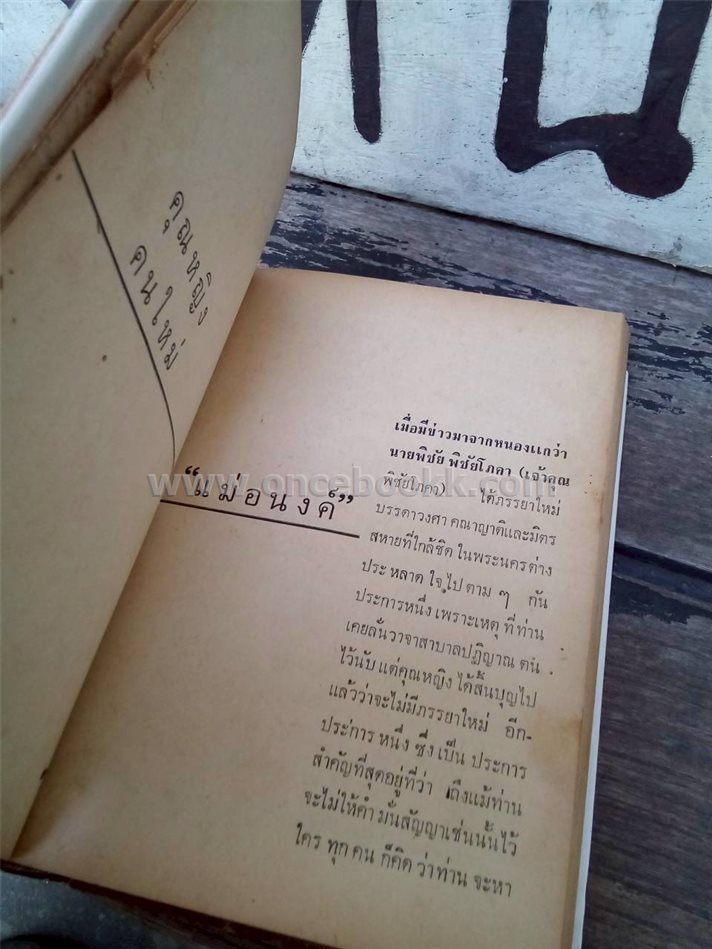 คุณหญิง
คนใหม่
"แม่อนงค์"
เมื่อมีข่าวมาจากหนองแกว่า
นายพิชัย พิชัยโภคา (เจ้าคุณ
พิชัยโภคา) ได้ภรรยาใหม่
บรรดาวงศา คณาญาติและมิตร
สหายที่ใกล้ชิด ในพระนครต่าง
ประ หลาด ใจ ไป ตาม ๆ กัน
ประการหนึ่ง เพราะเหตุ ที่ท่าน
เคยลั่นวาจาสาบาลปฏิญาณ ตน
ไว้นับ แต่คุณหญิง ได้สิ้นบุญไป
แล้วว่าจะไม่มีภรรยาใหม่ อีก-
ประการ หนึ่ง ซึ่ง เป็น ประการ
สำคัญที่สุดอยู่ที่ว่า ถึงแม้ท่าน
จะไม่ให้คำ มั่นสัญญาเช่นนั้นไว้
ใคร ทุก คน ก็คิด ว่าท่าน จะหา
www.oncebookk.com